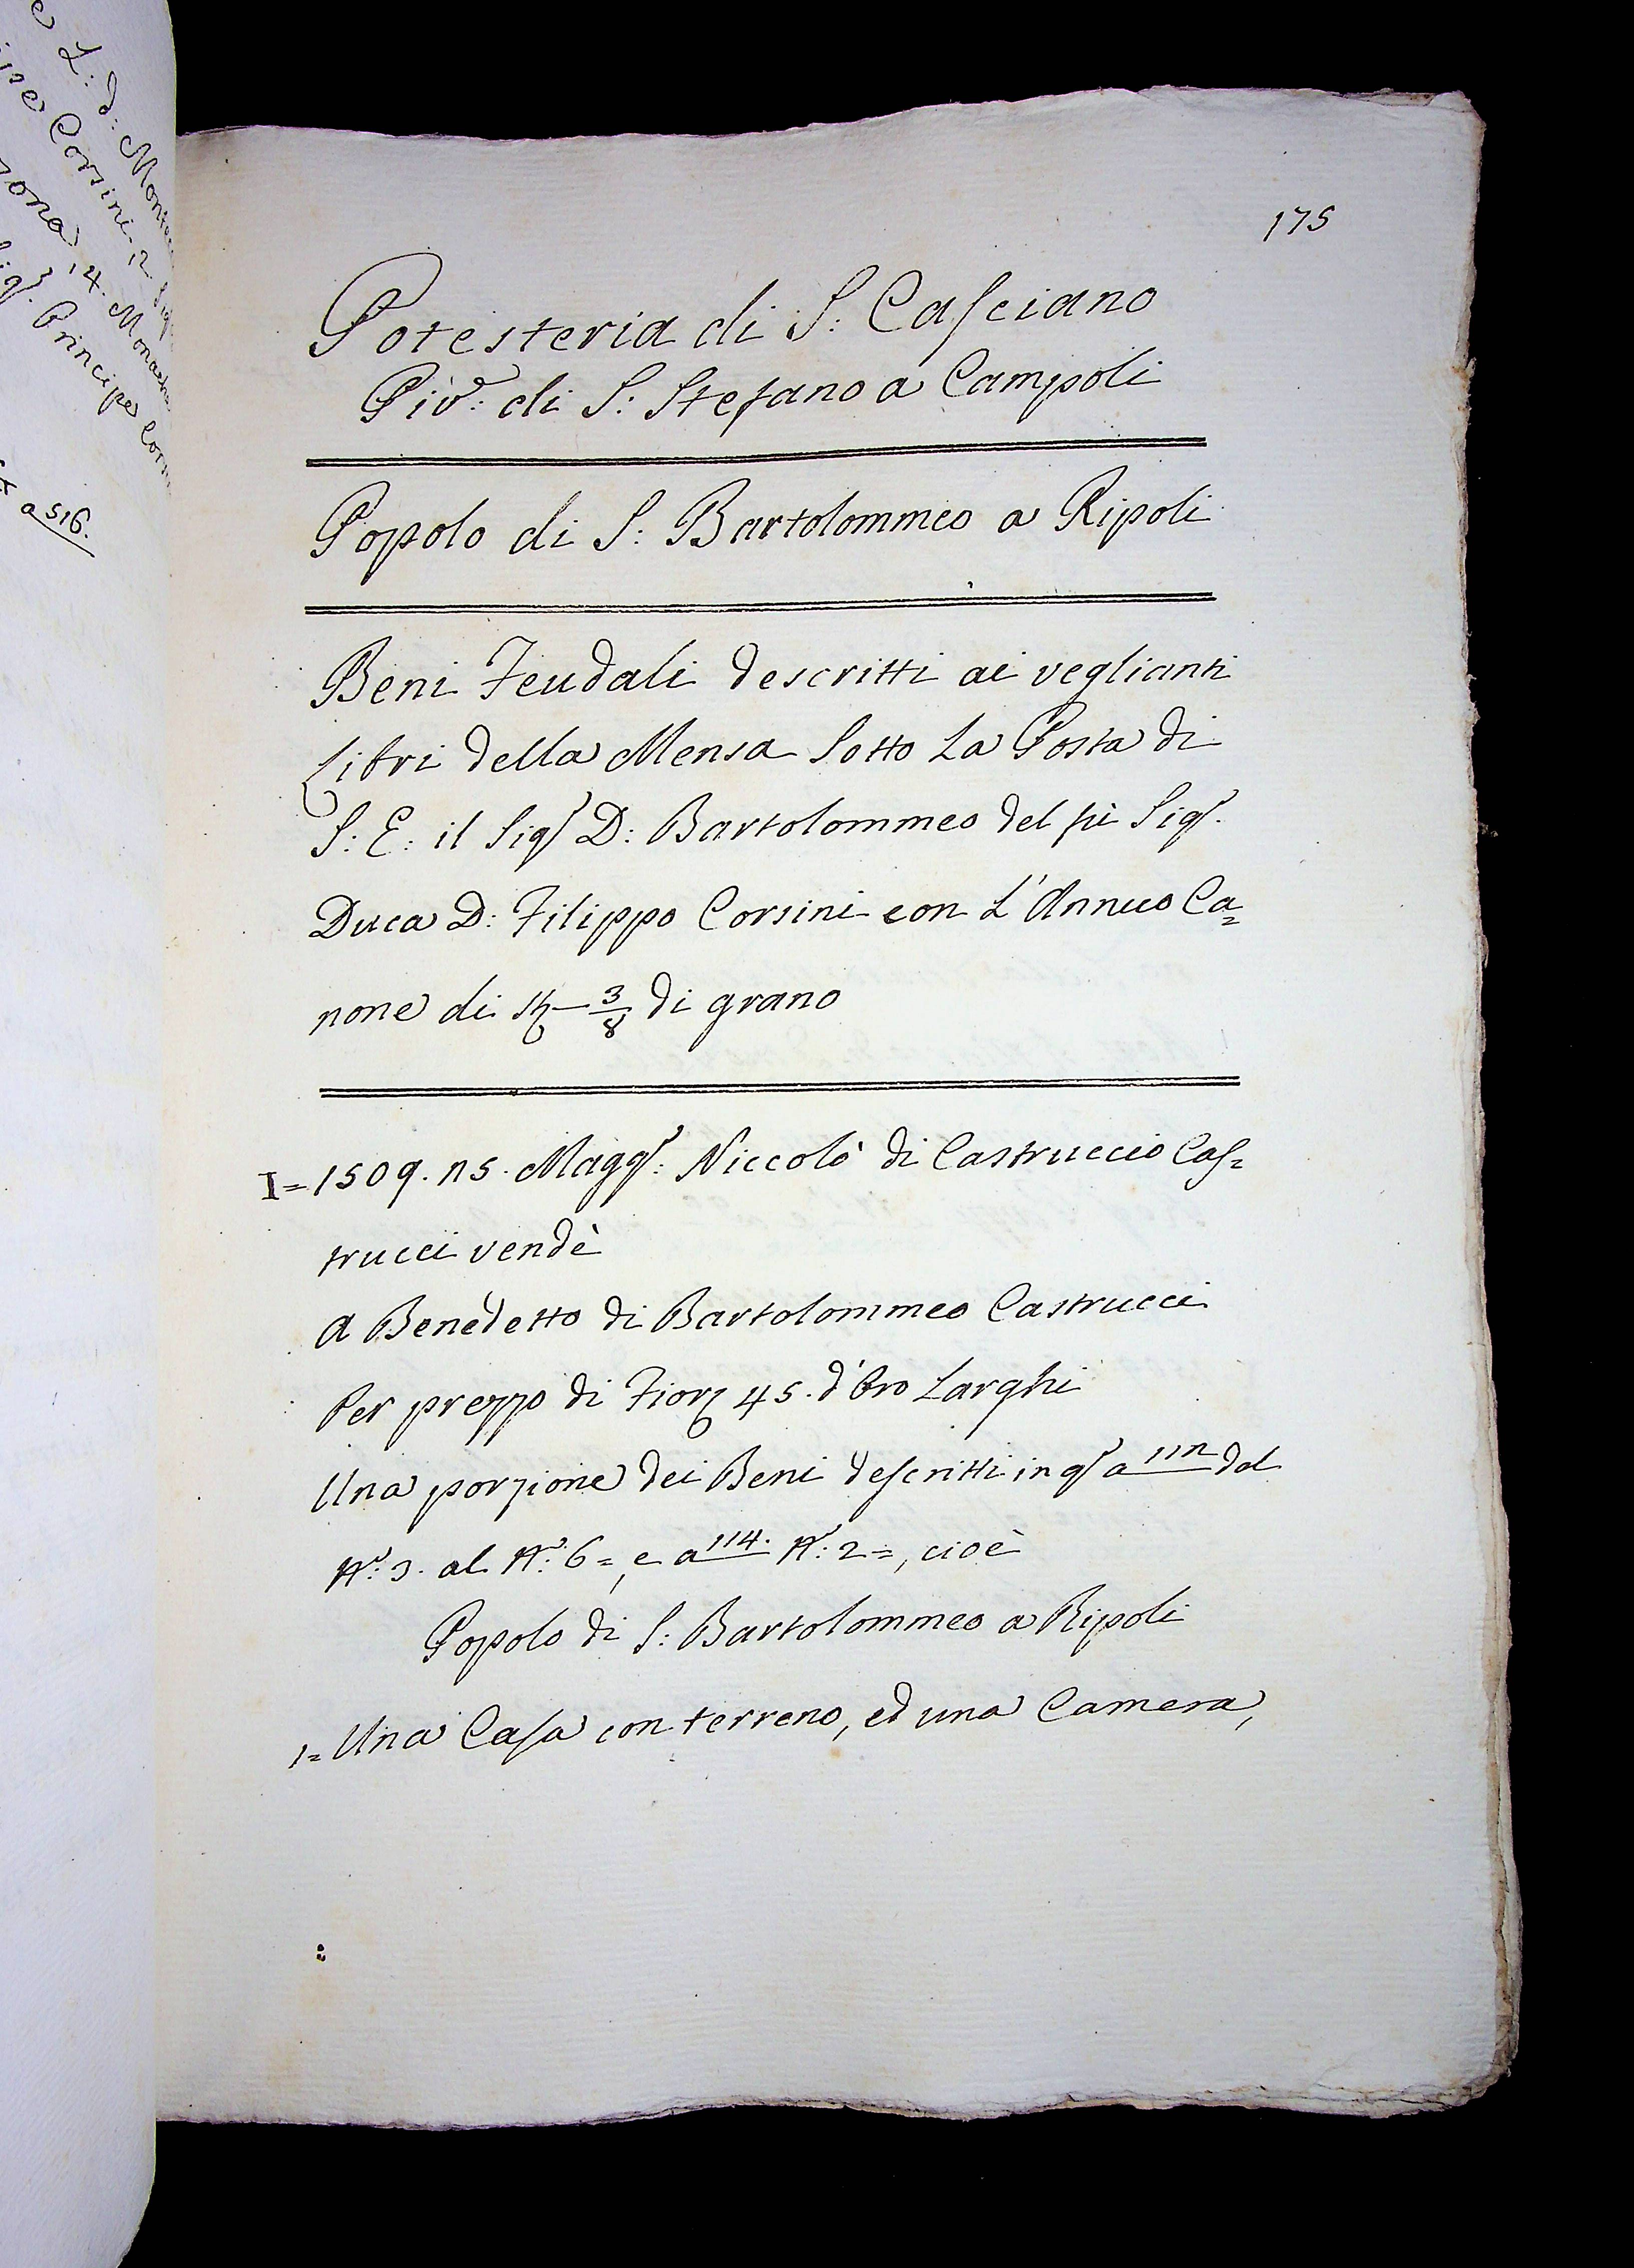 e L: d: Mon
Corsini, 2. Sig
zona, 4. Mona
Sigr. Principe Cors
a 516.
175
Potesteria di S: Casciano
Piv: di S: Stefano a Campoli
Popolo di S: Bartolommeo a Ripoli
Beni Feudali descritti ai veglianti
Libri della Mensa Sotto La Posta di
S: E: il Sigr D: Bartolommeo del fù Sigr.
Duca D: Filippo Corsini con L'Annuo Ca=
none di St — 3/8 di grano
I = 1509. 15. Maggo: Niccolò di Castruccio Cas=
trucci vendè
A Benedetto di Bartolommeo Castrucci
Per prezzo di Fior 45. d'Oro Larghi
Una porzione dei Beni descritti in qo a 112 dal
No: 3. al No: 6 =, e a 114. No: 2 =, cioè
Popolo di S: Bartolommeo a Ripoli
1 = Una Casa con terreno, ed una Camera,